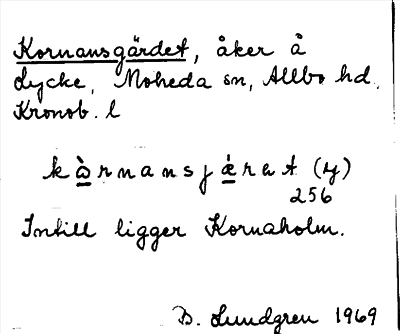 Kornansgärdet, åker å
Lycke, Moheda sn, Allbo hd.
Kronob. l
kò̲rnansjǽ̲rat (y)
256
Intill ligger Kornaholm.
B. Lundgren 1969